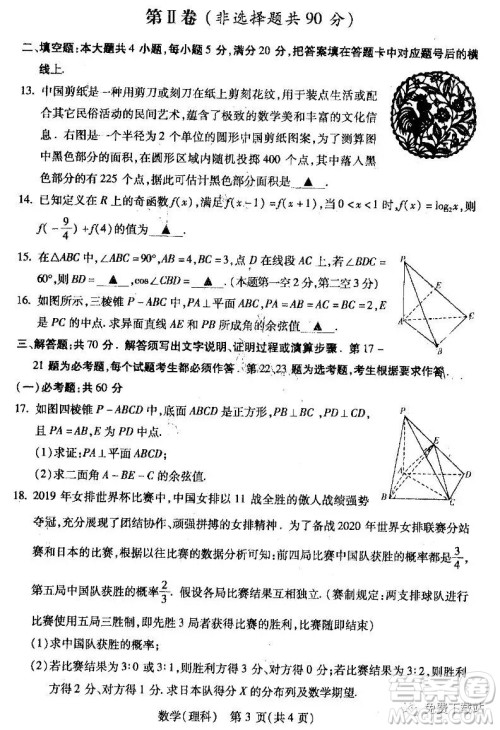 第Ⅱ卷(非选择题共90分)
二、填空题:本大题共4小题,每小题5分,满分20分,把答案填在答题卡中对应题号后的横
线上.
13. 中国剪纸是一种用剪刀或刻刀在纸上剪刻花纹,用于装点生活或配合
其他民俗活动的民间艺术,蕴含着极致的数学美和丰富的文化信
息. 右图是一个半径为2个单位的圆形中国剪纸图案,为了测算图
中黑色部分的面积,在圆形区域内随机投掷400个点,其中落入黑
色部分的有225个点,据此可估计黑色部分的面积是 ▲ .
14. 已知定义在R上的奇函数f(x),满足f(x-1)=f(x+1),当0<x<1时,f(x)=log₂x,则
f(-9/4)+f(4)的值为 ▲ .
15. 在△ABC中,∠ABC=90°,AB=4,BC=3,点D在线段AC上,若∠BDC=
60°,则BD= ▲ ,cos∠CBD= ▲ .(本题第一空2分,第二空3分)
16. 如图所示,三棱锥P-ABC中,PA⊥平面ABC,
是PC的中点,求异面直线AE与PB所成角的余弦值 ▲ .
三、解答题:共70分. 解答须写出文字说明、证明过程或演算步骤. 第17-
21题为必考题,每个试题考生都必须作答. 第22、23题为选考题,考生根据要求作答.
(一)必考题:共60分
17. 如图四棱锥P-ABCD中,底面ABCD是
PA⊥底面ABCD,PB⊥BC,PD⊥CD,且PA=
(1)求证:PA⊥平面ABCD;
(2)求二面角A-BE-C的余弦值.
18. 2019年女排世界杯比赛中,中国女排以11战全胜的傲人战绩强势
夺冠,充分展现了团结协作、顽强拼搏的女排精神. 为了备战2020年世界女排联赛分站
中国和日本的比赛,赛前进行了数据分析与推测:前四局比赛中国队获胜的概率是3/4,
第五局中国队获胜的概率2/3. 假设各局比赛结果互相独立.(赛制规定:两支排球队比赛
使用五局三胜制,即累计先胜三局者获胜,比赛随即结束)
(1)求中国队获胜的概率;
(2)若比赛结果为3:0或3:1,则胜利方得3分,对方得0分;若比赛结果为3:2,则胜利
方得2分,对方得1分. 求中国队得分X的分布列及数学期望.
数学(理科) 第3页(共4页)
免费下载站